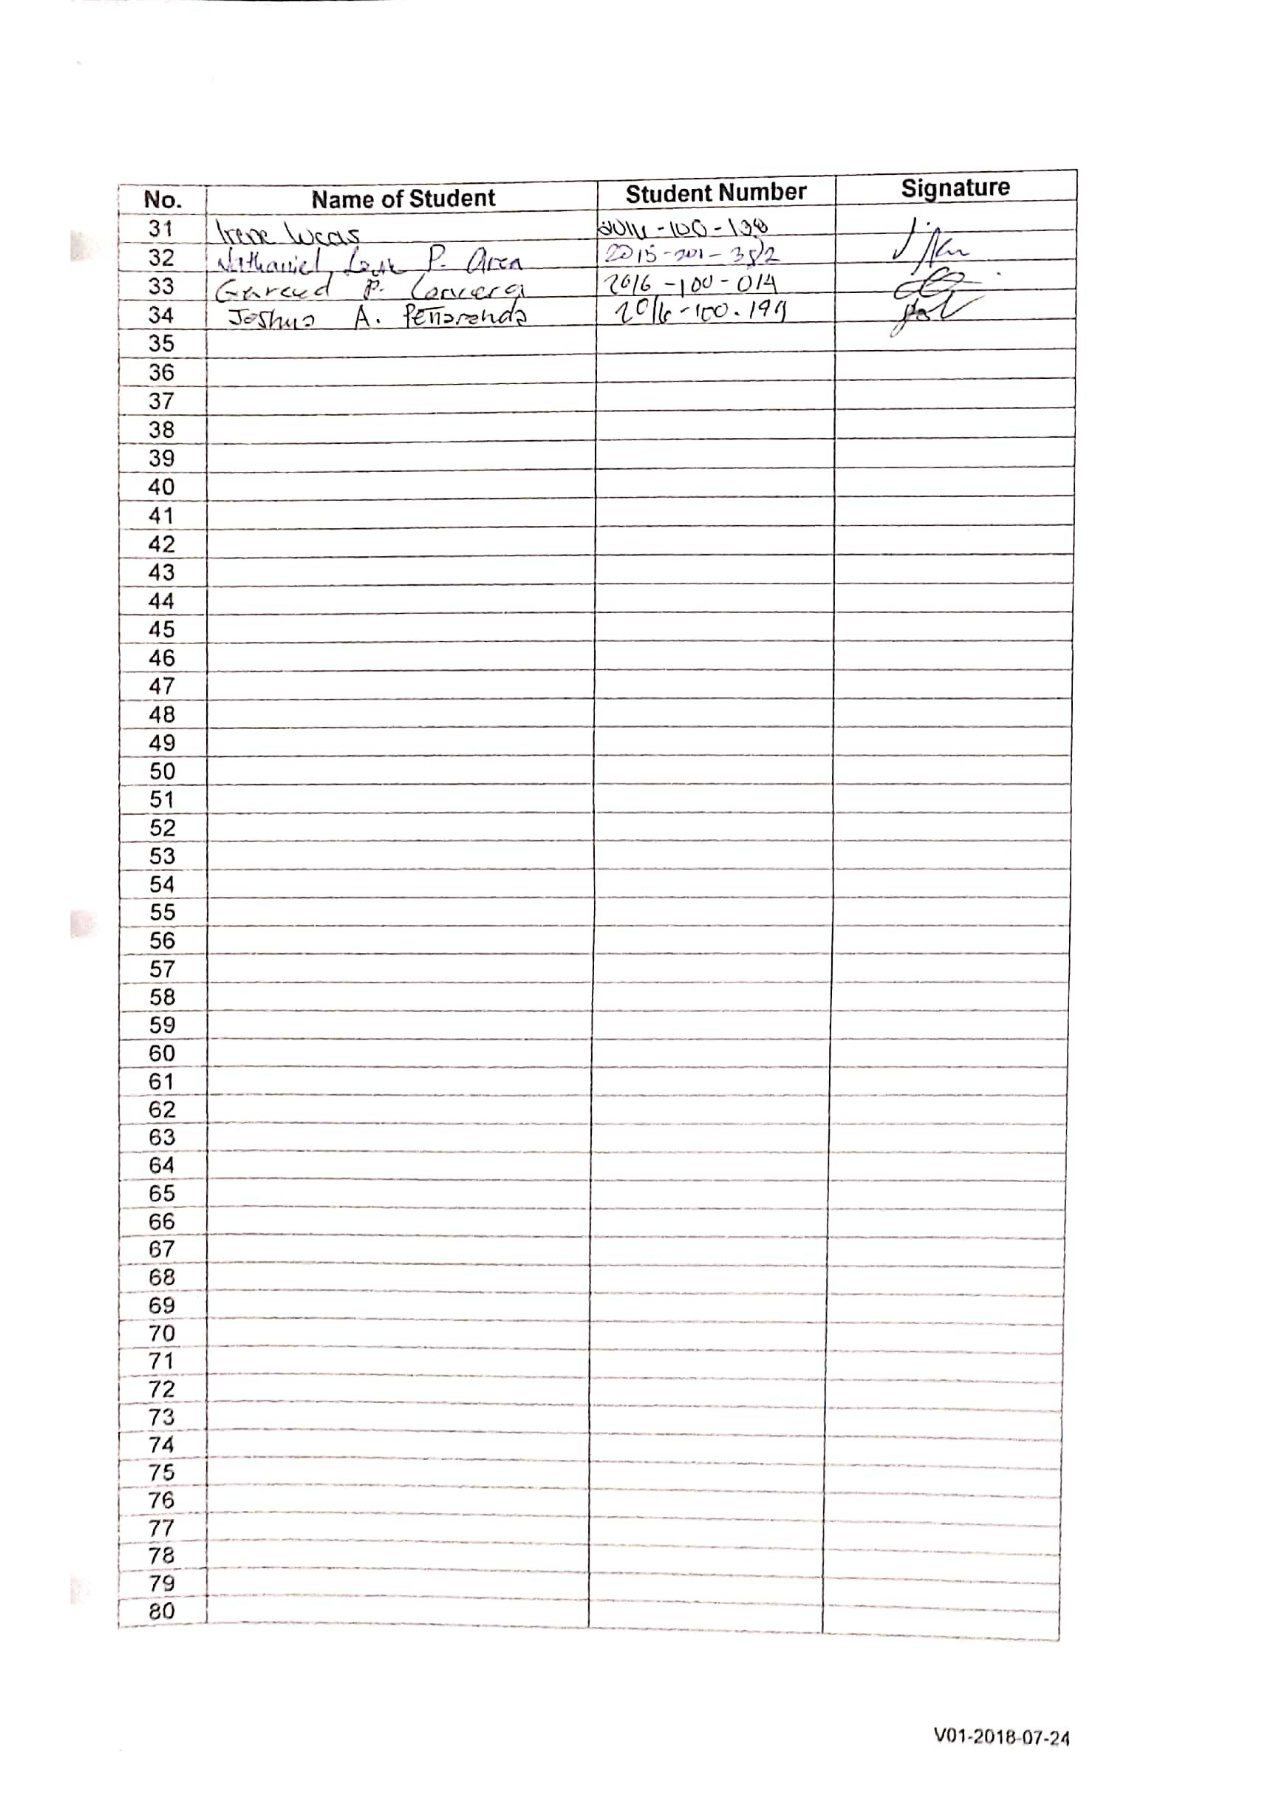 No. Name of Student Student Number Signature
31 Irene Lucas -100-138
32 Nathaniel P. 2015-201-352
33 P. 2016-100-014
34 Joshua A. Peñaranda 2016-100-199
35
36
37
38
39
40
41
42
43
44
45
46
47
48
49
50
51
52
53
54
55
56
57
58
59
60
61
62
63
64
65
66
67
68
69
70
71
72
73
74
75
76
77
78
79
80
V01-2018-07-24